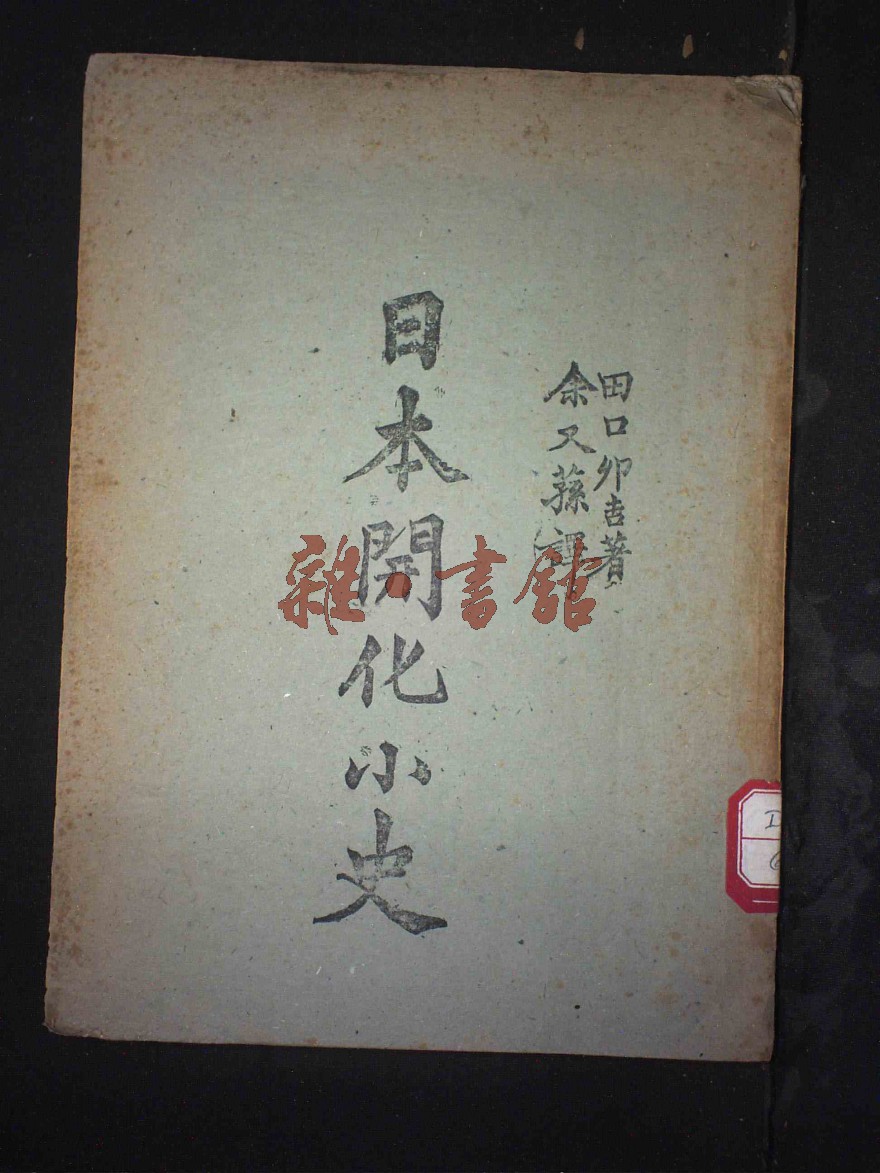 田口卯吉著
余又蓀譯
日本開化小史
雜·書館